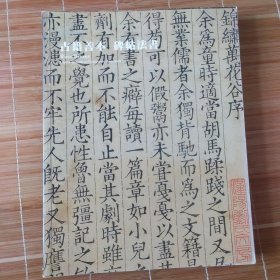 錦繡萬花谷序
余爲童時適當胡馬蹂踐之間又
無業儒者余獨背馳而爲之文籍
得苟可以假鬻亦未嘗戛戛以盡其
余有書之癖每讀一篇章如小兒
劑有加而不能自止當其劇時雖
盡不之覺也所患性魯無彊記之
亦漫漶而不牢先人旣老又獨
古籍善本 碑帖法書